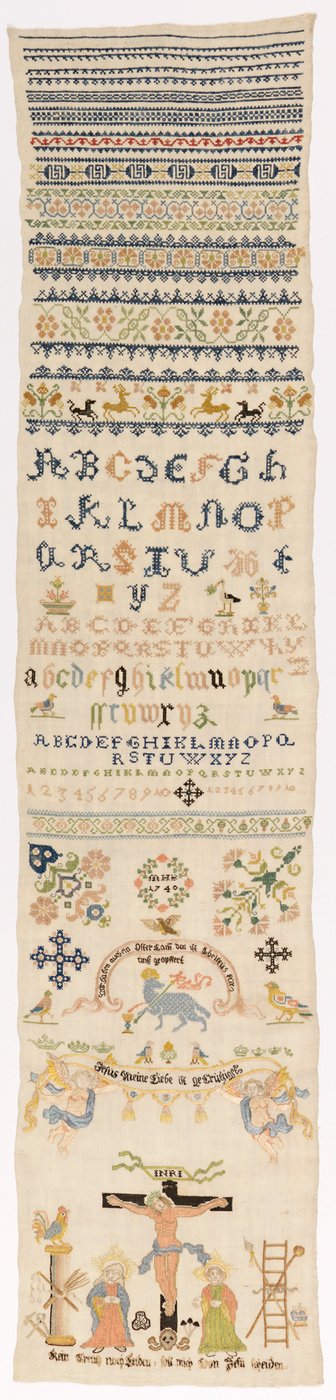 A B C D E F G H
I K L M N O P
Q R S T U V W X
Y Z
A B C D E F G H I K L
M N O P Q R S T U W X Y
Z
a b c d e f g h i k l m n o p q r
s t u v w x y z
A B C D E F G H I K L M N O P Q
R S T U W X Y Z
A B C D E F G H I K L M N O P Q R S T U W X Y Z
1 2 3 4 5 6 7 8 9 10 1 2 3 4 5 6 7 8 9 10
MHS
1740
Wir haben auch ein Oster Lam das ist Christus für
uns geopfert
Jesus Meine Liebe ist geCrützigt
INRI
Kein Creutz noch Leiden soll mich Von Jesu scheiden